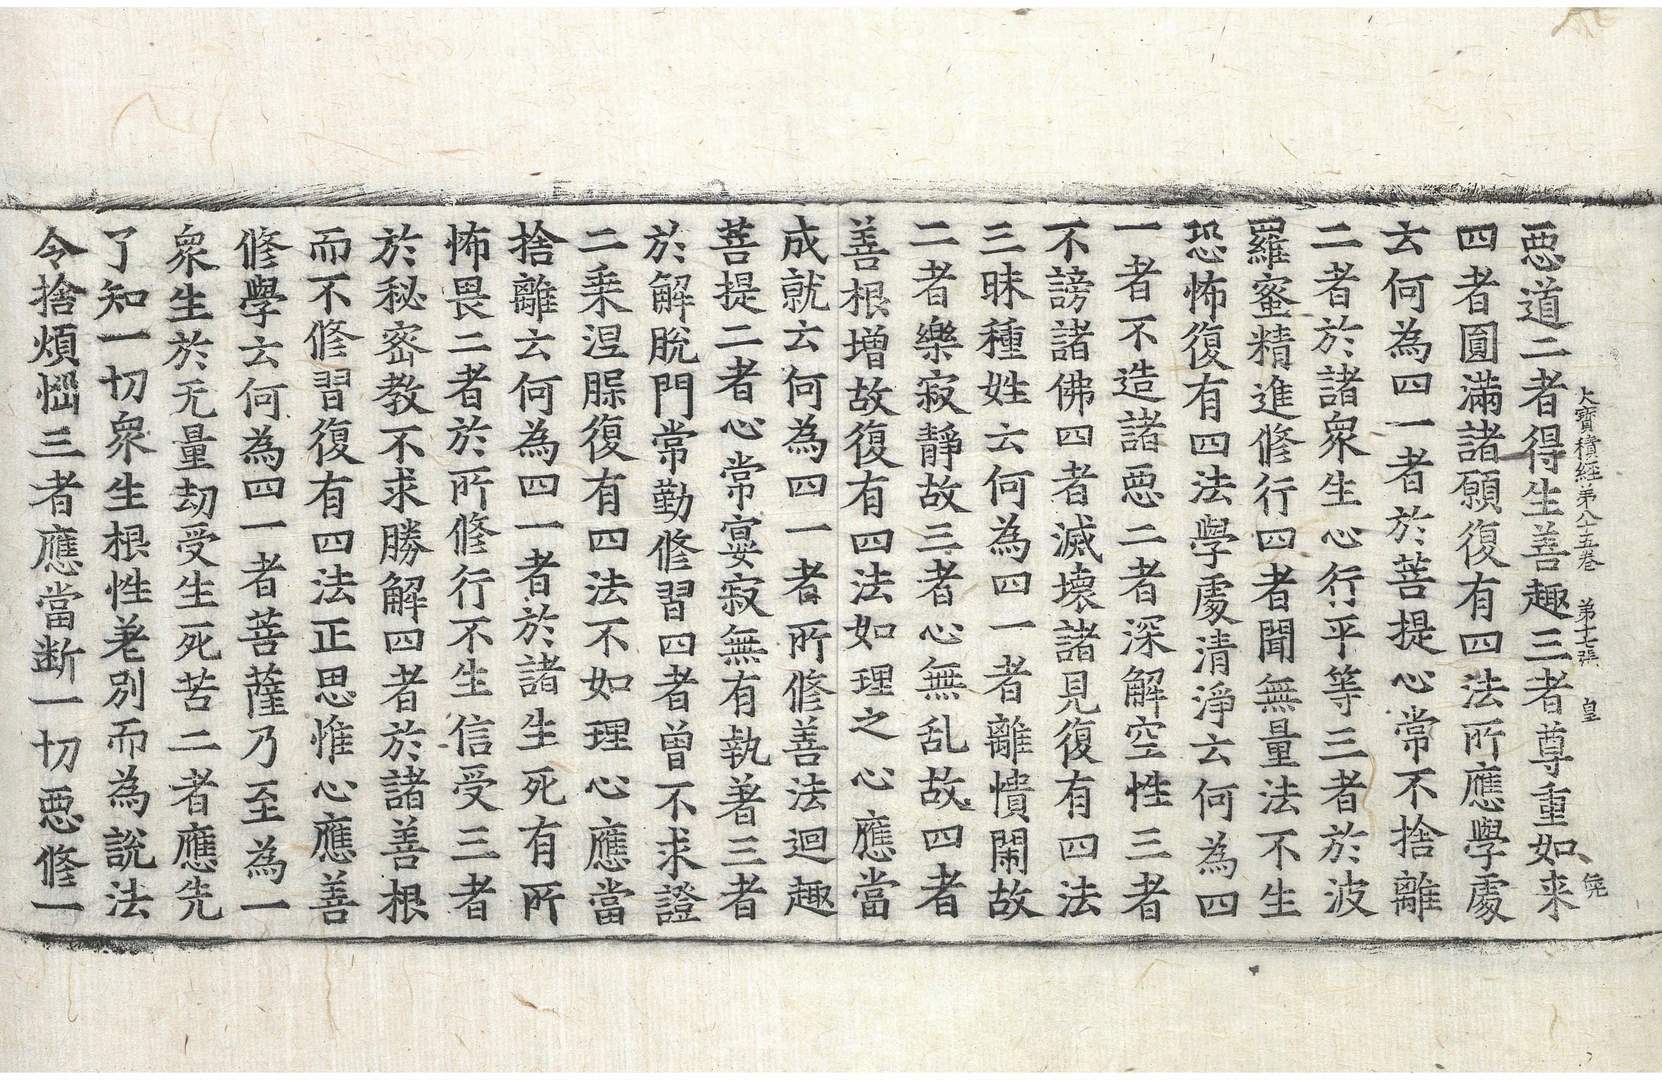 大寶積經第八十五卷　第十七張　皇
惡道二者得生善趣三者尊重如来
四者圓滿諸願復有四法所應學處
云何為四一者於菩提心常不捨離
二者於諸衆生心行平等三者於波
羅蜜精進修行四者聞無量法不生
恐怖復有四法學處清淨云何為四
一者不造諸惡二者深解空性三者
不謗諸佛四者滅壞諸見復有四法
三昧種姓云何為四一者離憒閙故
二者樂寂靜故三者心無乱故四者
善根增故復有四法如理之心應當
成就云何為四一者所修善法迴趣
菩提二者心常宴寂無有執著三者
於解脫門常勤修習四者曾不求證
二乗涅槃復有四法不如理心應當
捨離云何為四一者於諸生死有所
怖畏二者於所修行不生信受三者
於秘密教不求勝解四者於諸善根
而不修習復有四法正思惟心應善
修學云何為四一者菩薩乃至為一
衆生於无量劫受生死苦二者應先
了知一切衆生根性差別而為說法
令捨煩惱三者應當断一切惡修一